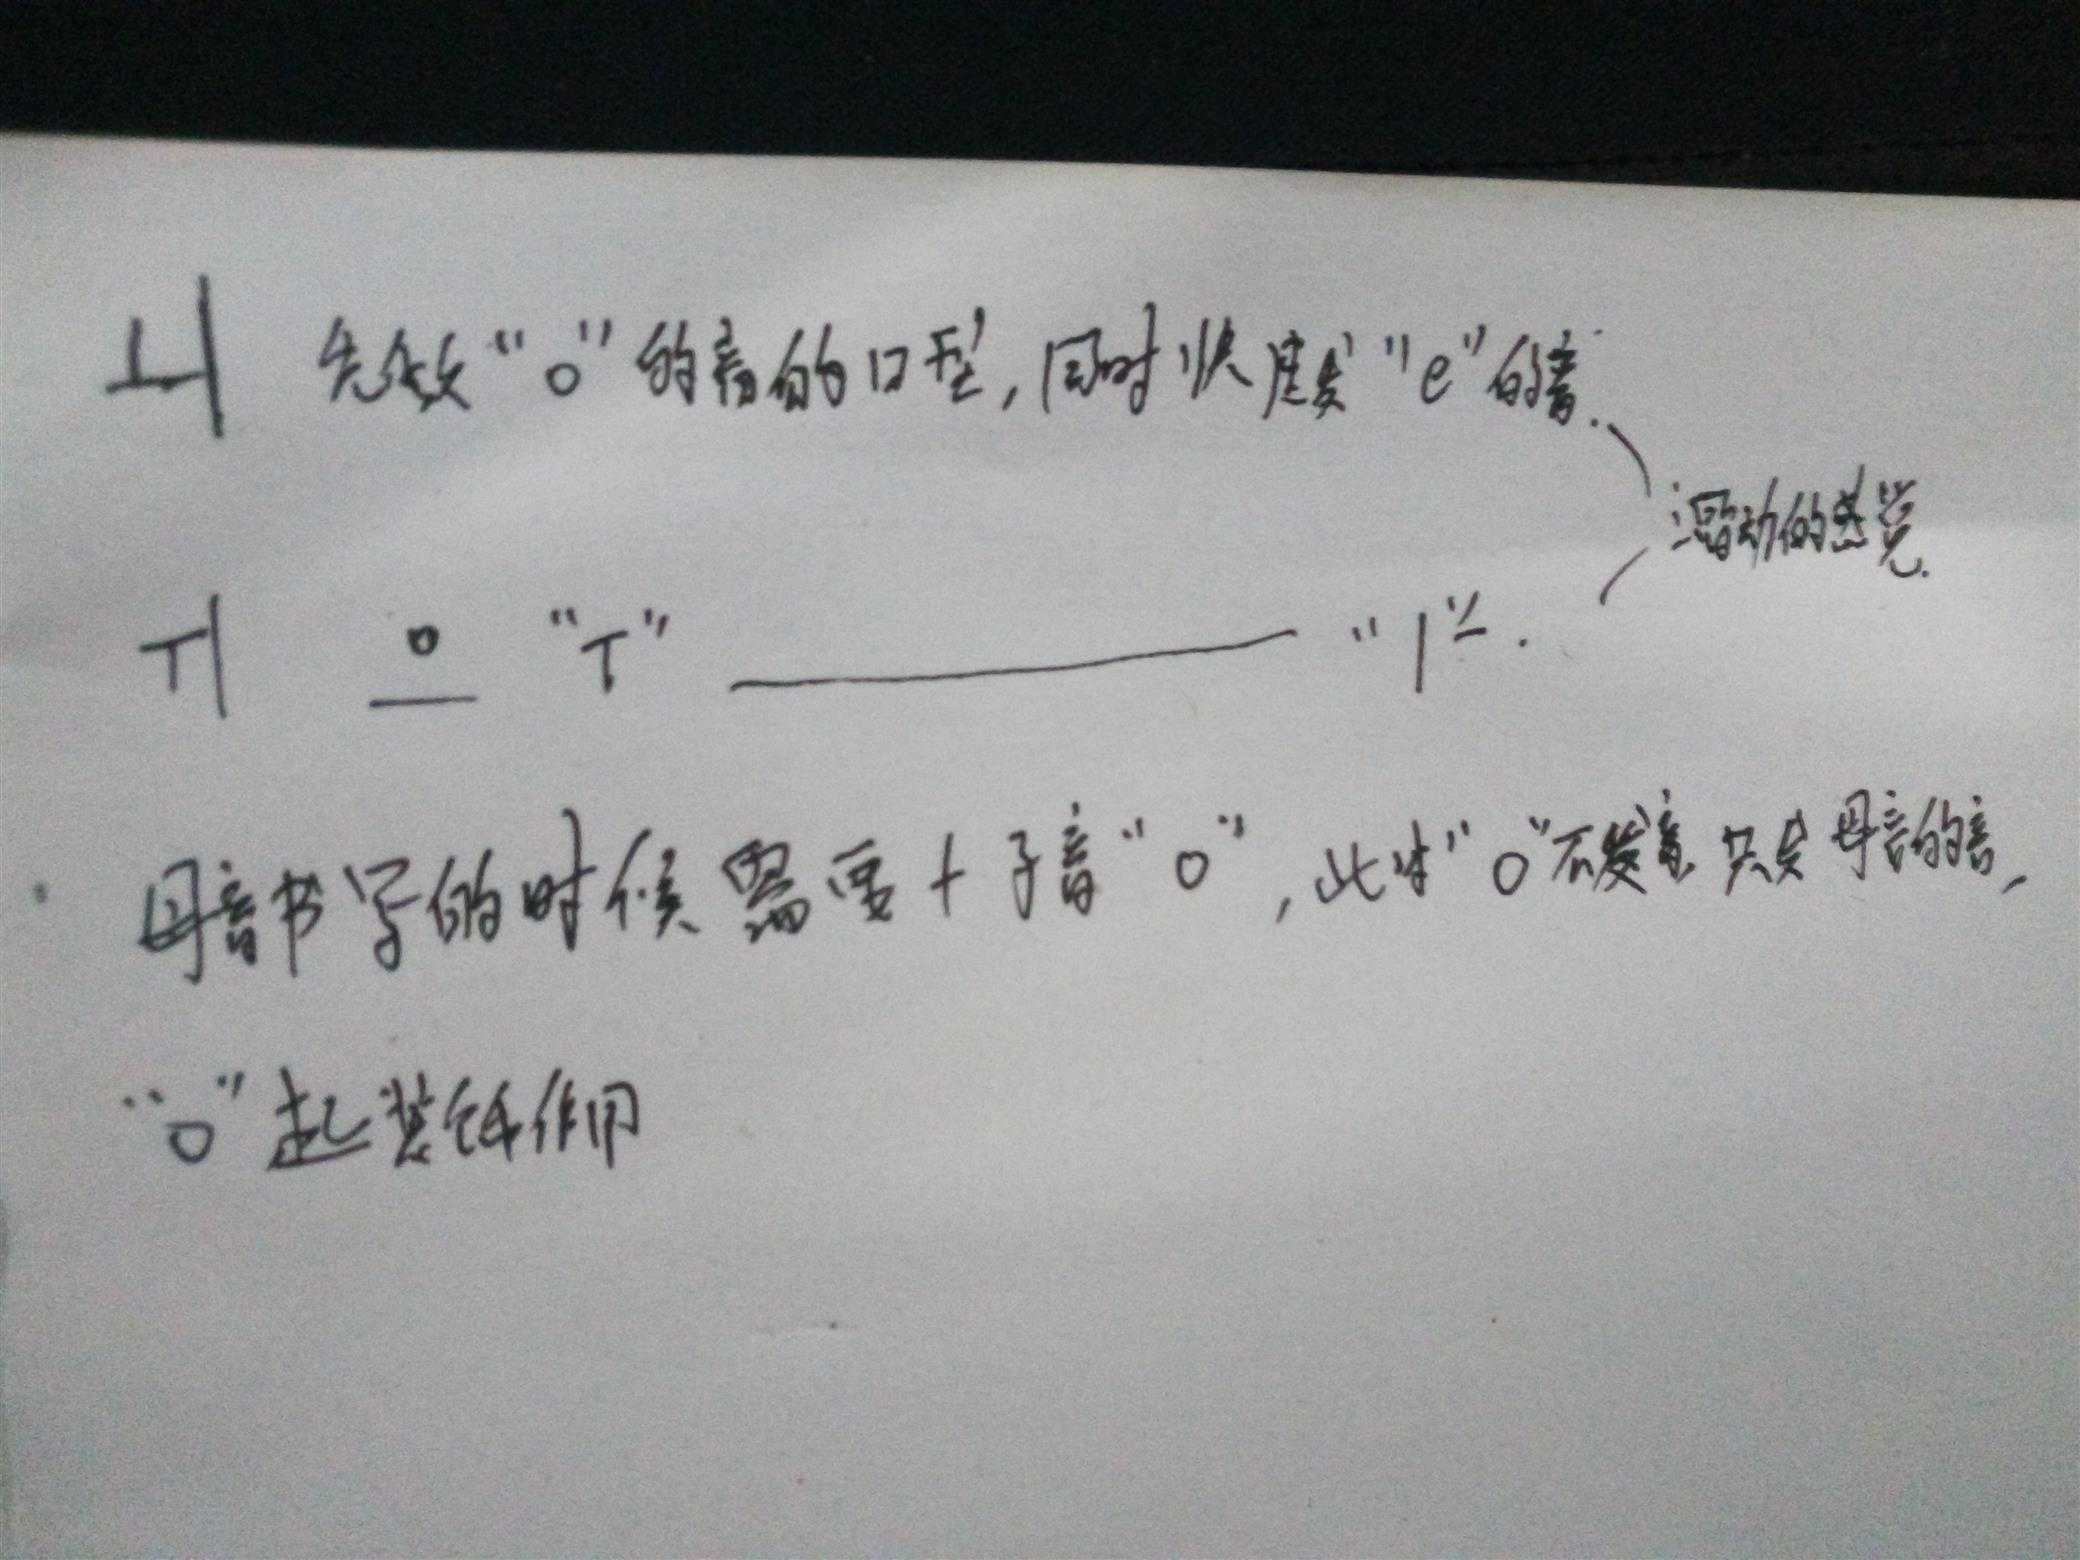 ㅚ 先做“o”的音的口型，同时快速发“e”的音.
滑动的感觉.
ㅟ “ㅜ” “ㅣ” .
母音书写的时候需要+子音“o”，此时“o”不发音 只发母音的音，
“o”起装饰作用